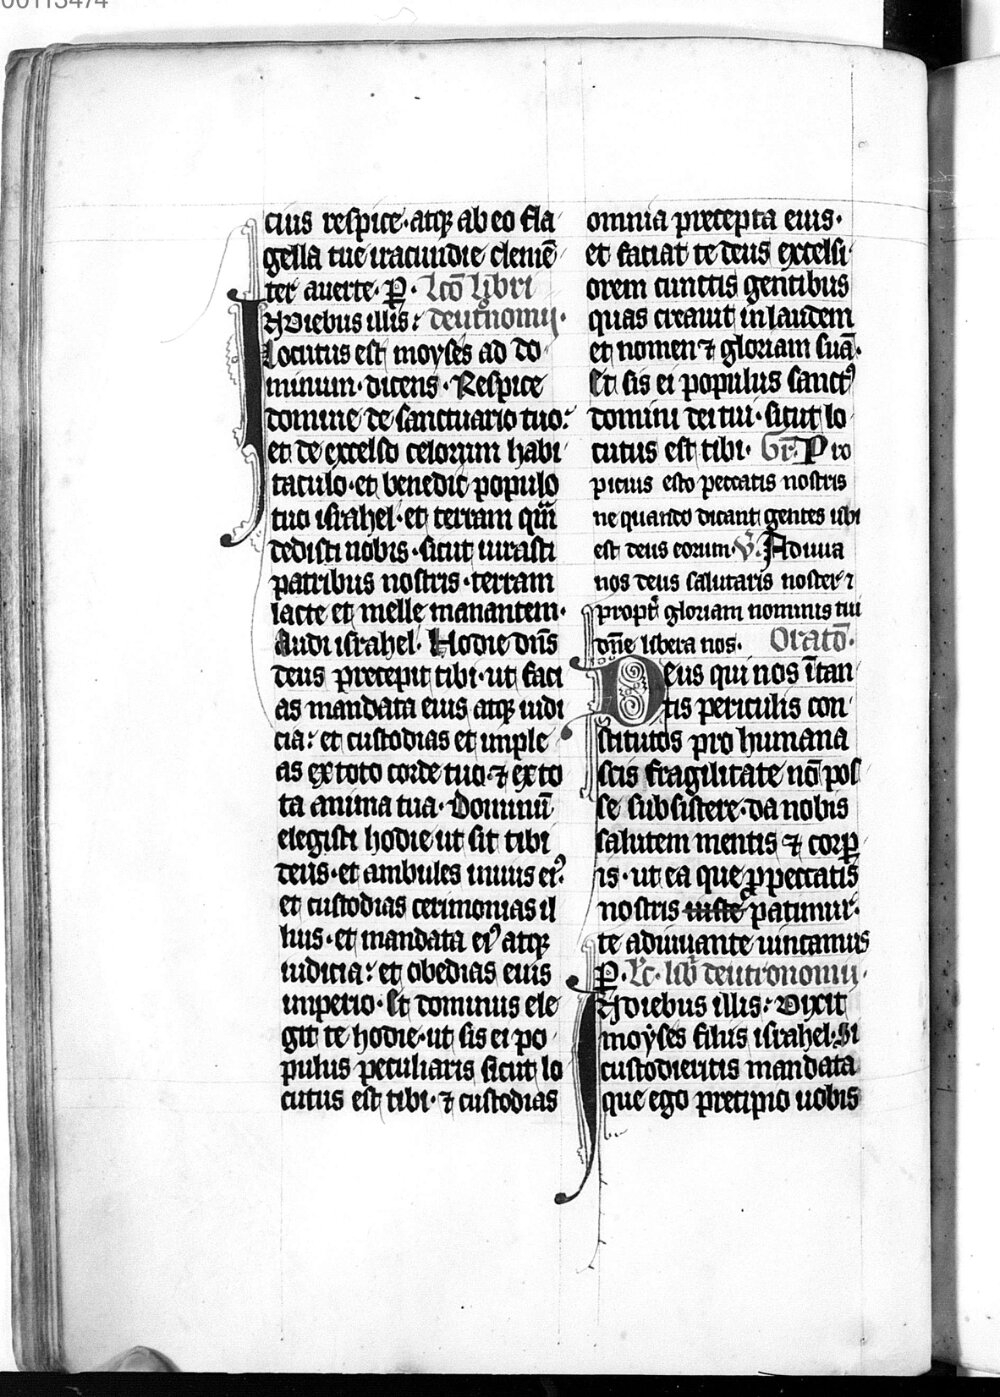 00113474
cius respice· atqꝫ ab eo fla
gella tue iracundie clemē
ter auerte· ꝑ· Lcō libri
IN diebus illis: deutronomij·
Locutus est moyses ad do
minum· dicens· Respice
domine de sanctuario tuo:
et de excelso celorum habi
taculo· et benedic populo
tuo israhel· et terram quā
dedisti nobis· sicut iurasti
patribus nostris· terram
lacte et melle manantem·
Audi israhel· Hodie dn̄s
deus precepit tibi· ut faci
as mandata eius atqꝫ iudi
cia: et custodias et imple
as ex toto corde tuo· ⁊ ex to
ta anima tua· Dominū
elegisti hodie ut sit tibi
deus· et ambules in uiis eiꝰ
et custodias cerimonias il
lius· et mandata eiꝰ atqꝫ
iudicia: et obedias eius
imperio· Et dominus ele
git te hodie· ut sis ei po
pulus peculiaris sicut lo
cutus est tibi· ⁊ custodias
omnia precepta eius·
et faciat te deus excelsi
orem cunctis gentibus
quas creauit in laudem
et nomen ⁊ gloriam suā·
Et sis ei populus sanctꝰ
domini dei tui· sicut lo
cutus est tibi· Gr̄· Pro
picius esto peccatis nostris
ne quando dicant gentes ubi
est deus eorum· V̄· Adiuua
nos deus salutaris noster ⁊
propt̉ gloriam nominis tui
dn̄e libera nos· Oratō·
Deus qui nos ī tan
tis periculis con
stitutos pro humana
scis fragilitate nō pos
se subsistere· da nobis
salutem mentis ⁊ corꝑ
is· ut ea que ꝓ peccatis
nostris iuste patimur·
te adiuuante uincamus
ꝑ· Lc̄· lib̉ deutronomii·
IN diebus illis: Dixit
moyses filiis israhel· Si
custodieritis mandata
que ego precipio uobis